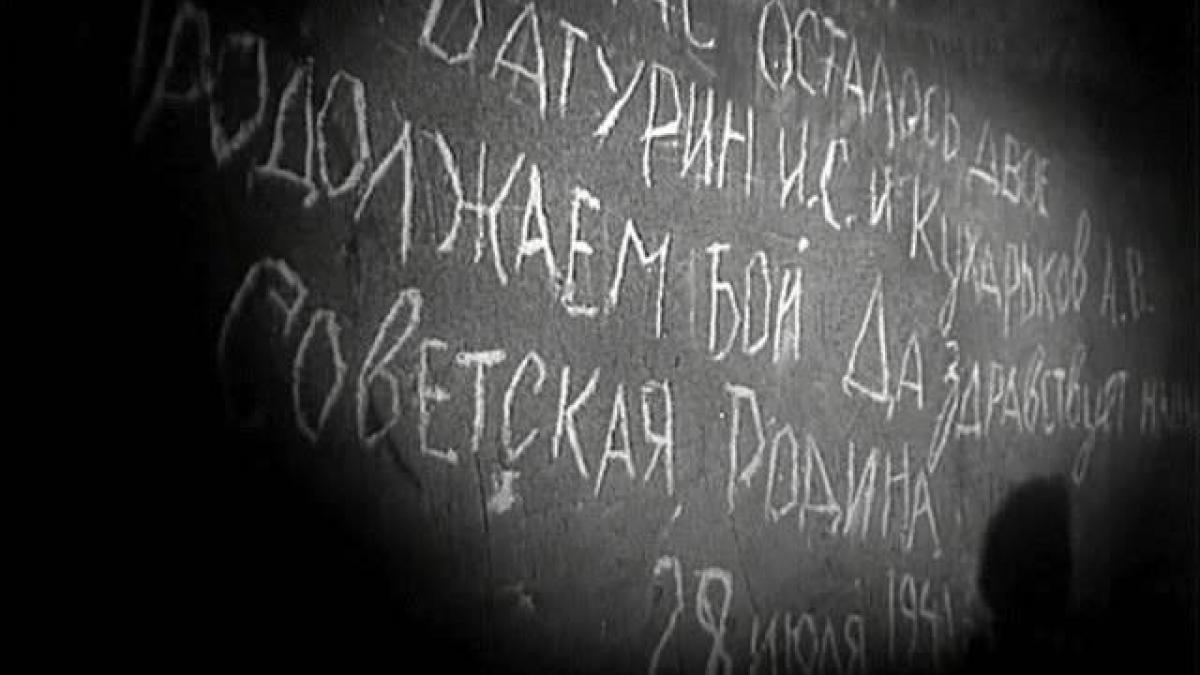 ОСТАЛОСЬ ДВОЕ
БАТУРИН И.С. И КУХАРЬКОВ А.В.
РОДОЛЖАЕМ БОЙ ДА ЗДРАВСТВУЕТ
СОВЕТСКАЯ РОДИНА
28 ИЮЛЯ 1941